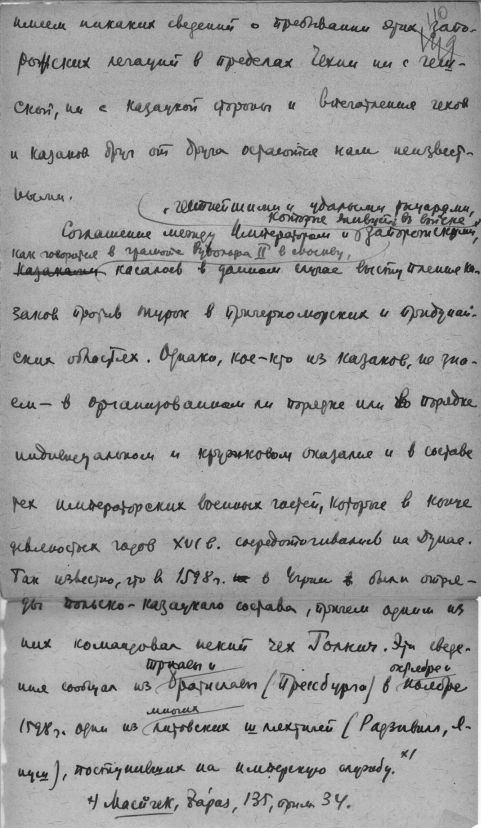 110
142
имеем никаких сведений о пребывании этих запо-
рожских легаций в пределах Чехии ни с чеш-
ской, ни с казацкой стороны и впечатления чехов
и казаков друг от друга остаются нам неизвест-
ными.
"честнейшими и удалыми рыцарями,
которые живут в войске
Соглашение между Императором и запорожским",
как говорится в грамоте Рудольфа II в Москву,
казаками касалось в данном случае выступления ка-
заков против турок в причерноморских и придунай-
ских областях. Однако, кое-кто из казаков, не зна-
ем — в организованном ли порядке или в порядке
индивидуальном и кружковом оказался и в составе
тех императорских военных частей, которые в конце
девяностых годов XVI в. сосредотачивались на Дунае.
Так известно, что в 1598 г. в Угрии были отря-
ды польско-казацкого состава, причем одним из
них командовал некий чех Голкич. Эти сведе-
ния сообщал из Братиславы (Прессбурга) в ноябре
октябре и
1598 г. один из литовских шляхтичей (Радзивилл, Я-
многих
нуш), поступивших на имперскую службу. x)
x) Мастчек, Zápas, 135, прим. 34.